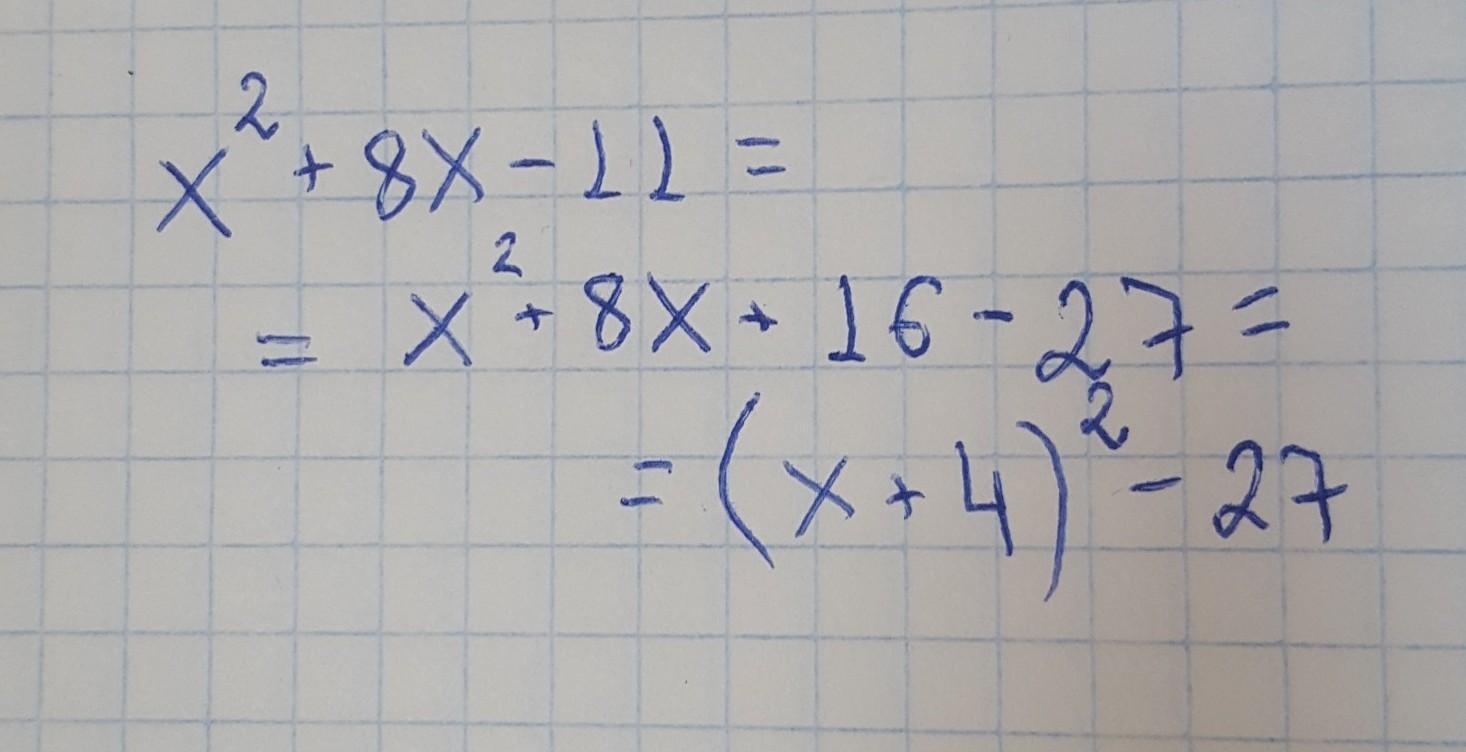 x² + 8x - 11 =
= x² + 8x + 16 - 27 =
= (x + 4)² - 27